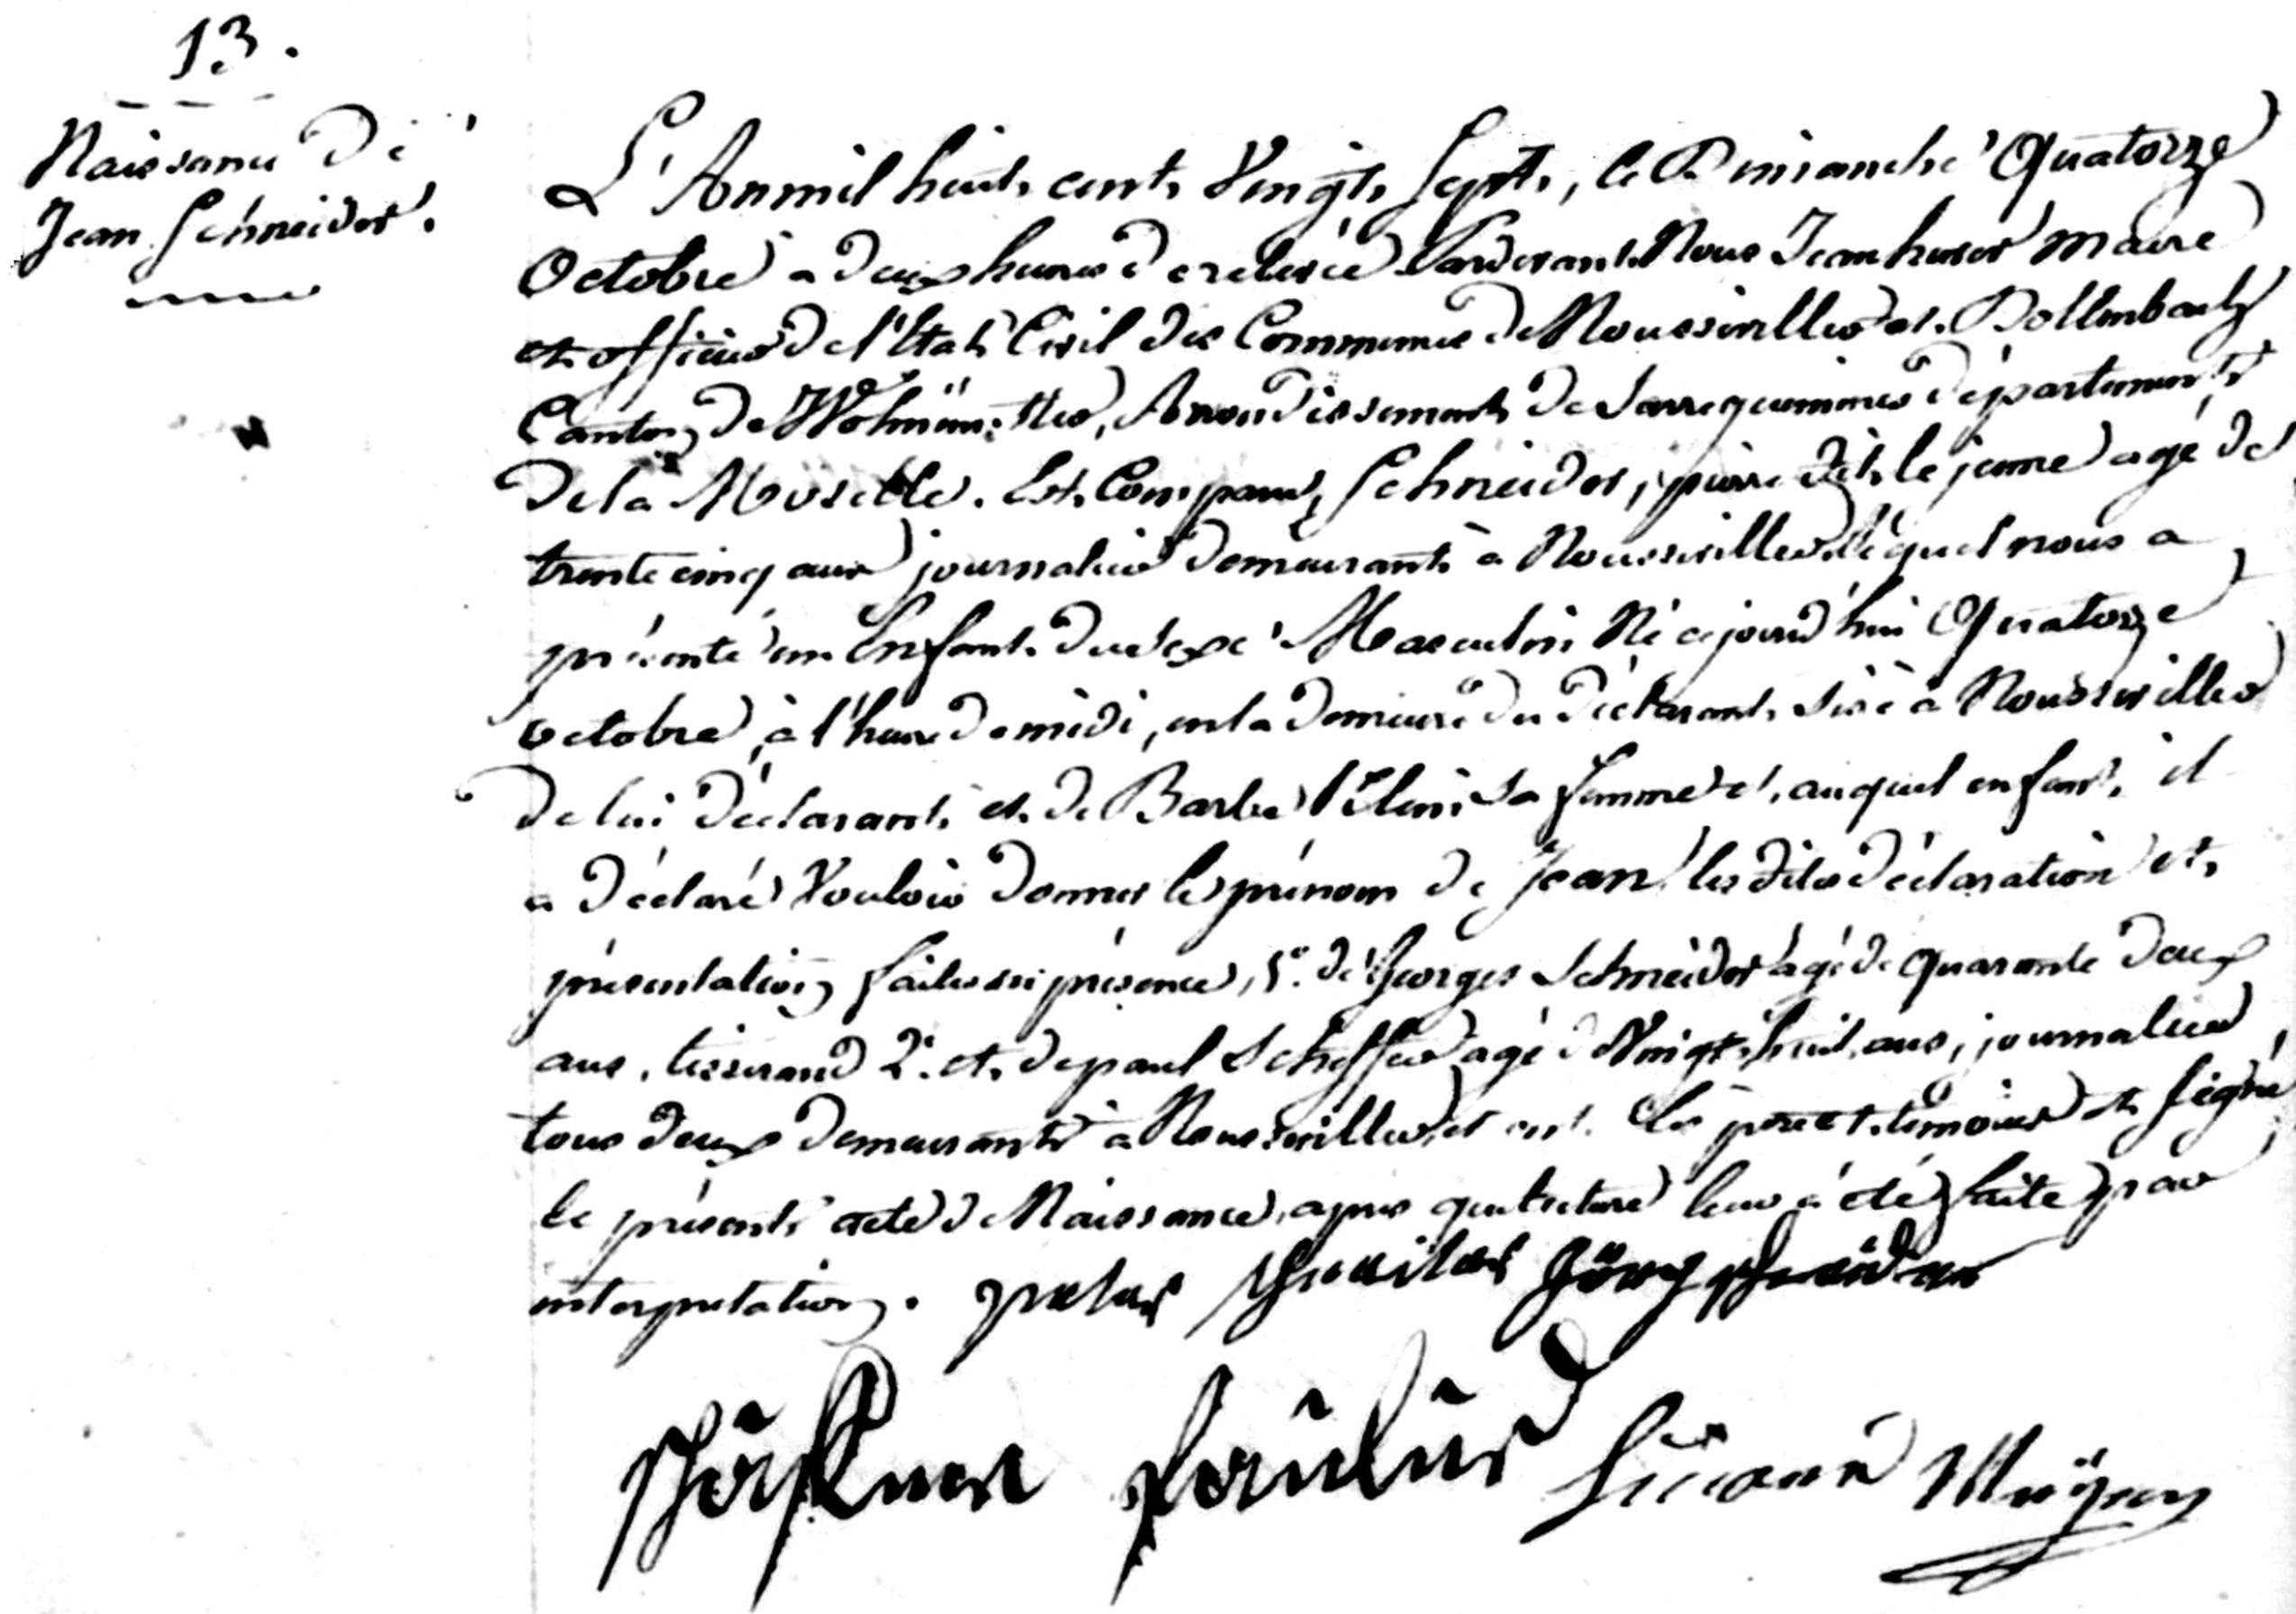 13.
Naissance de
Jean Schneider.
L'An mil huit cent Vingt Sept, le Dimanche Quatorze
Octobre à deux heures de relevée Pardevant Nous Jean huver maire
et officier de l'Etat Civil des Communes de Nousseviller et Dollenbach
Canton de Wolmünster, Arrondissement de Sarreguemines département
de la Moselle. Est Comparu Schneider, pierre dit le jeune agé de
trente cinq ans journalier demeurant à Nousseviller lequel nous a
présenté un Enfant du sexe Masculin Né cejourd'hui Quatorze
octobre, à l'heure de midi, en la demeure du déclarant sise à Nousseviller
de lui déclarant et de Barbe sa femme et auquel enfant, il
a déclaré Vouloir donner le prénom de Jean les dites déclaration et
présentation faites en présence, 1°. de Georges Schneider agé de quarante deux
ans, tisserand 2°. et de paul Scheffer agé de Vingt huit ans, journalier
tous deux demeurants à Nousseviller et ont les père et témoins signé
le présent acte de Naissance, apres que lecture leur a été faite par
interprétation. peter schneider Görg schneider
schäffer paulus